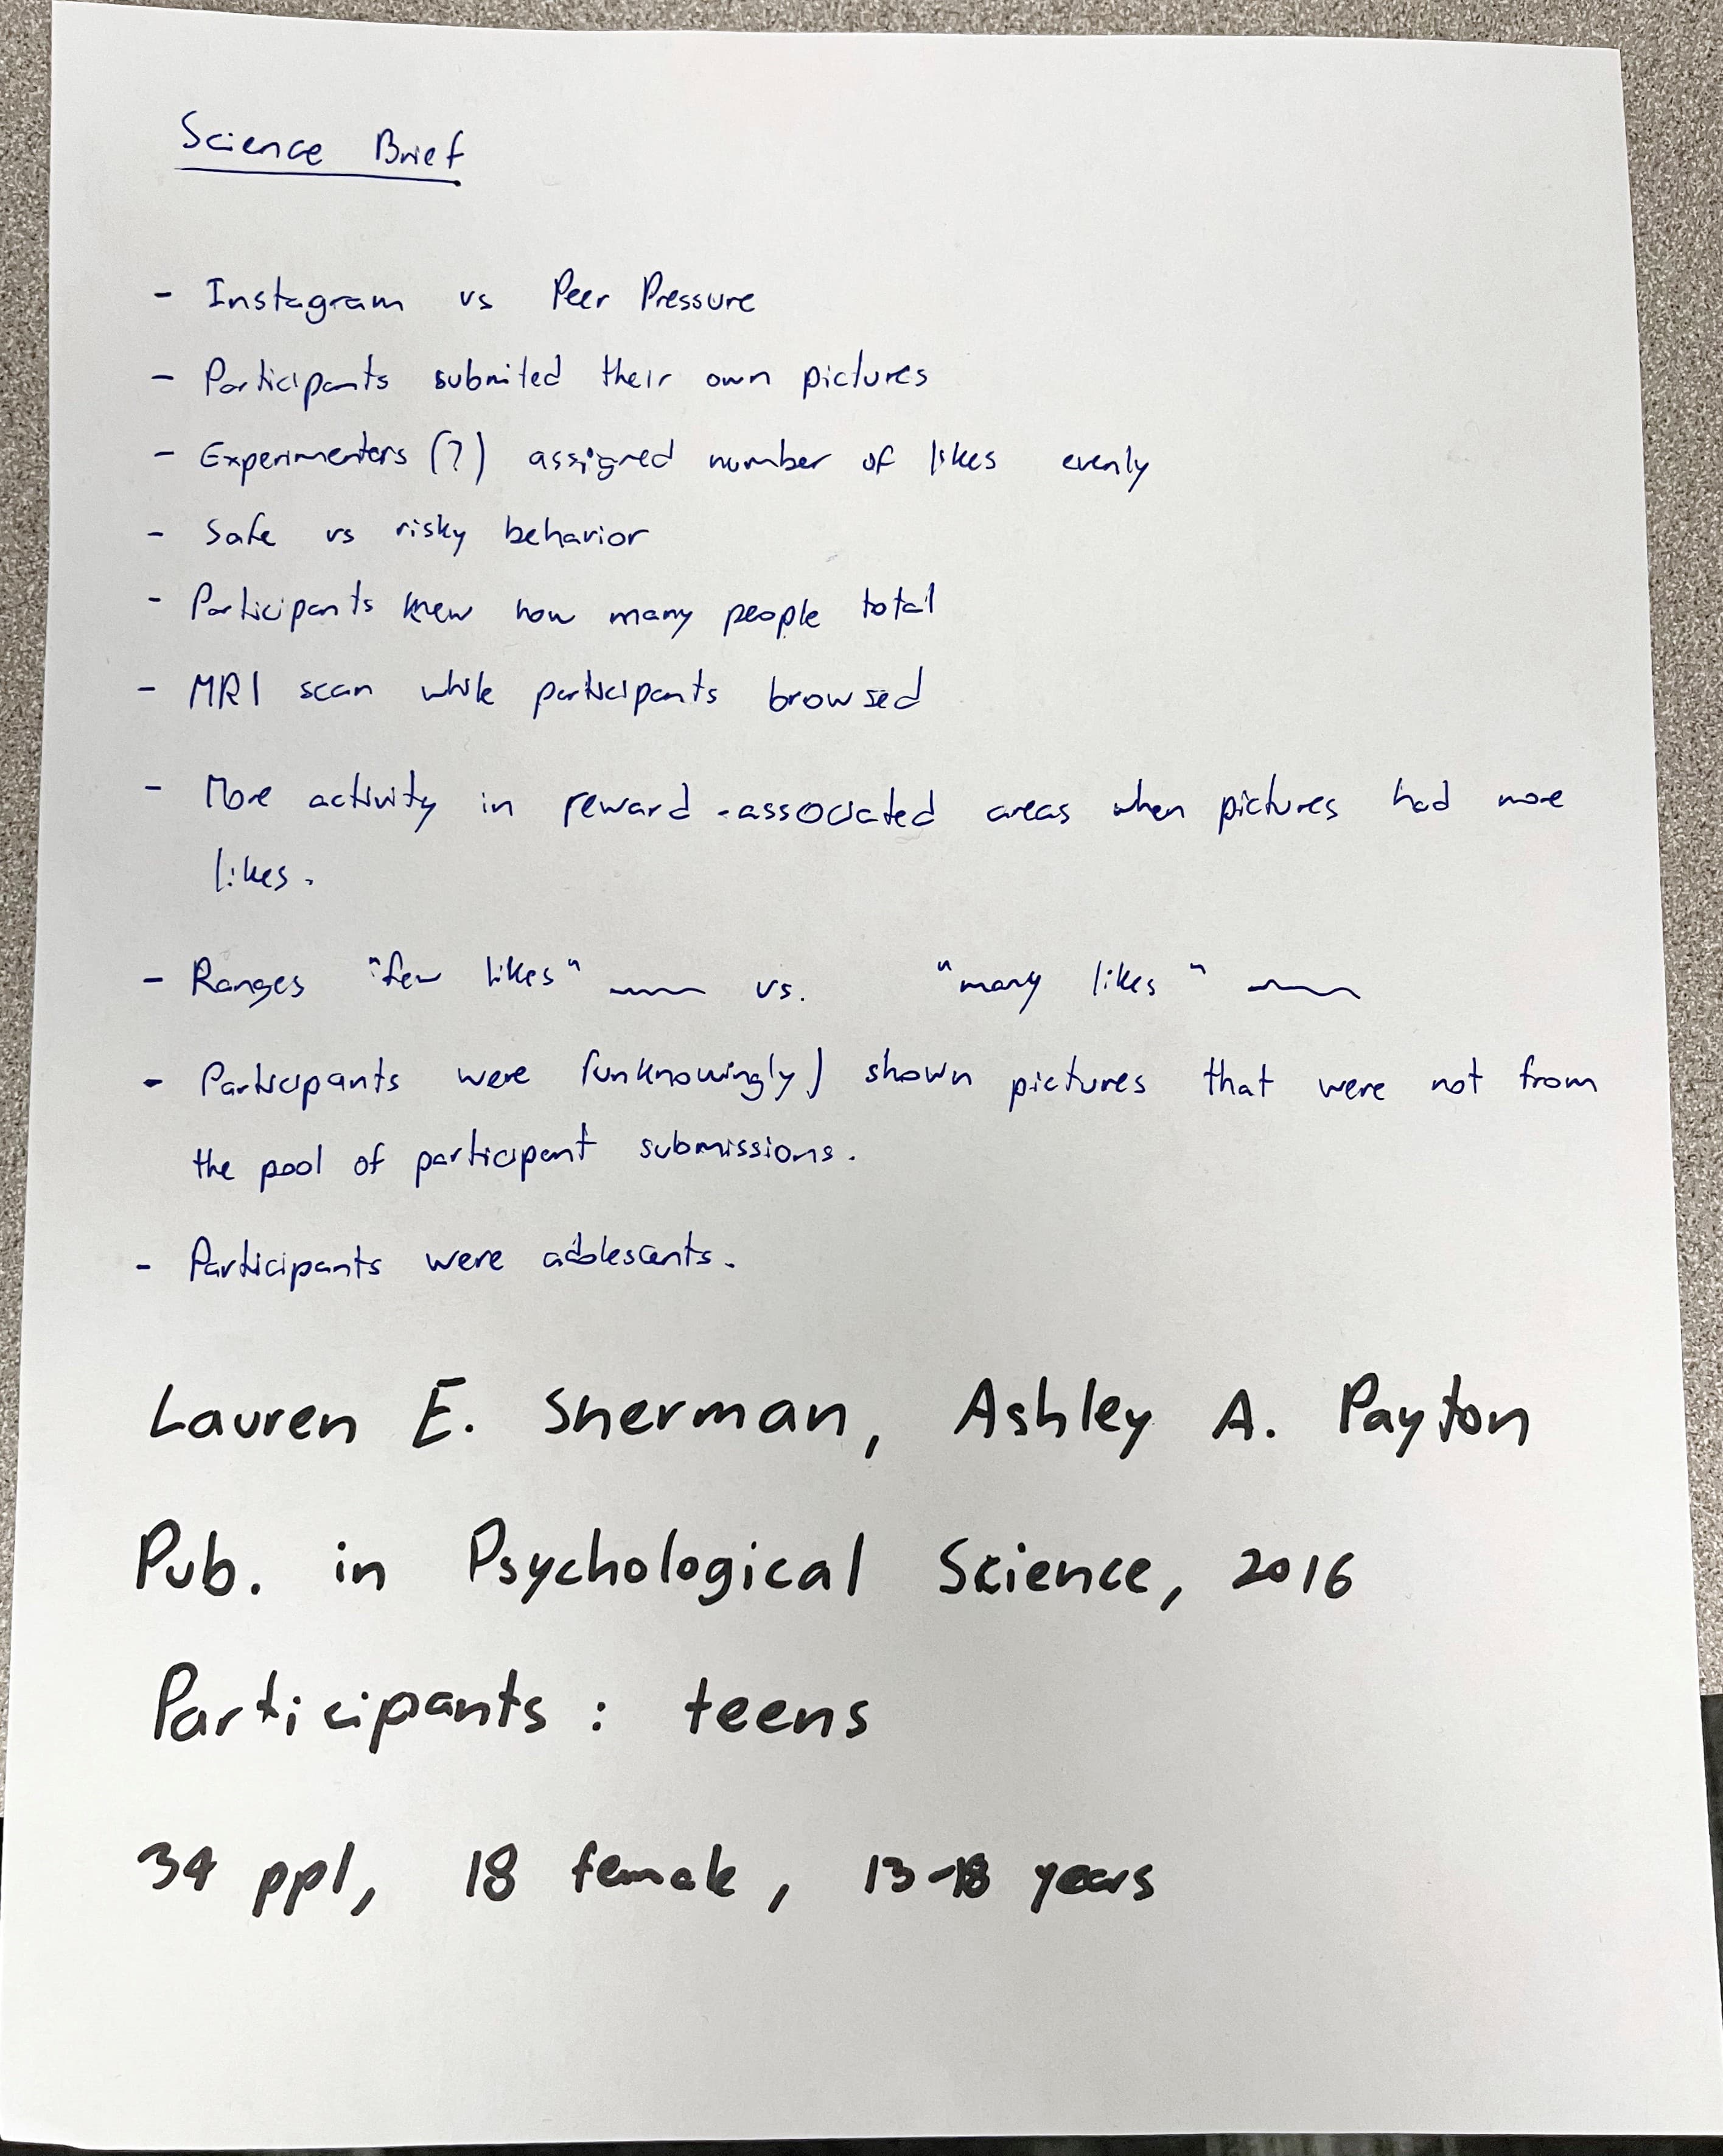 Science Brief
- Instagram vs Peer Pressure
- Participants submited their own pictures
- Experimenters (?) assigned number of likes evenly
- Safe vs risky behavior
- Participants knew how many people total
- MRI scan while participants browsed
- More activity in reward-associated areas when pictures had more
likes.
- Ranges "few likes" vs. "many likes"
- Participants were (unknowingly) shown pictures that were not from
the pool of participant submissions.
- Participants were adolescents.
Lauren E. Sherman, Ashley A. Payton
Pub. in Psychological Science, 2016
Participants: teens
34 ppl, 18 female, 13-18 years